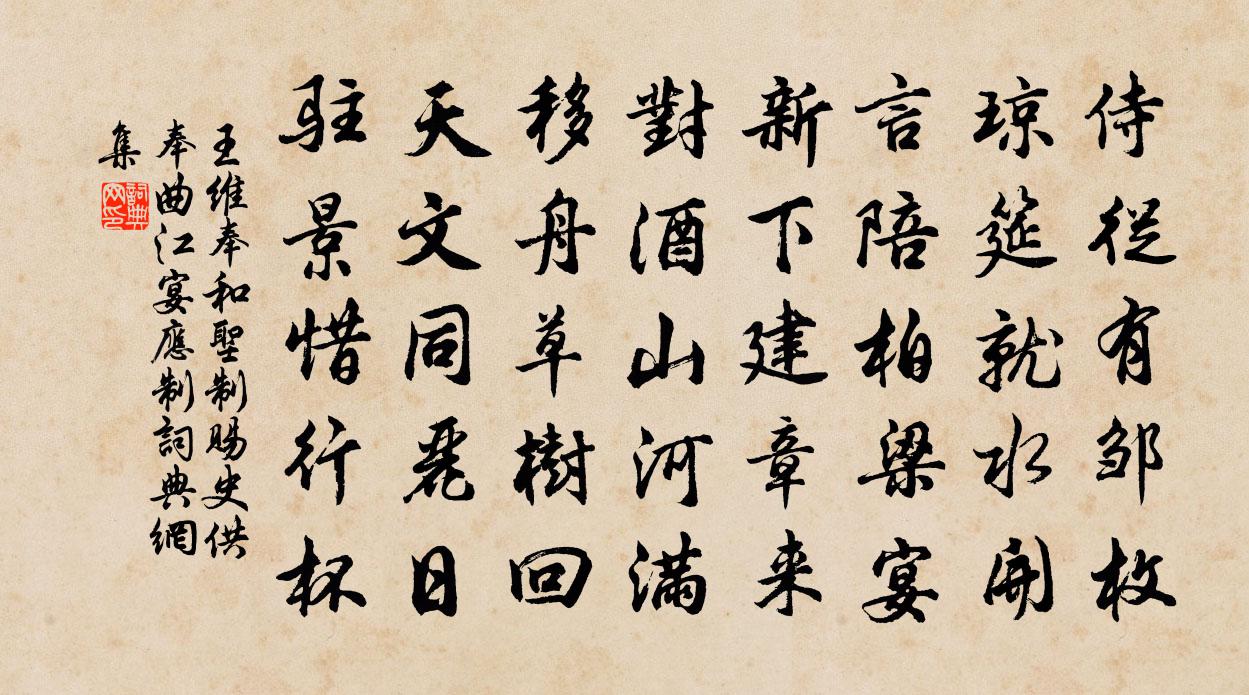 侍從有邹枚
琼筵就水開
言陪柏梁宴
新下建章来
對酒山河满
移舟草樹回
天文同麗日
驻景惜行杯
王維奉和聖制賜史供
奉曲江宴應制詞典網
集
詞典
网印